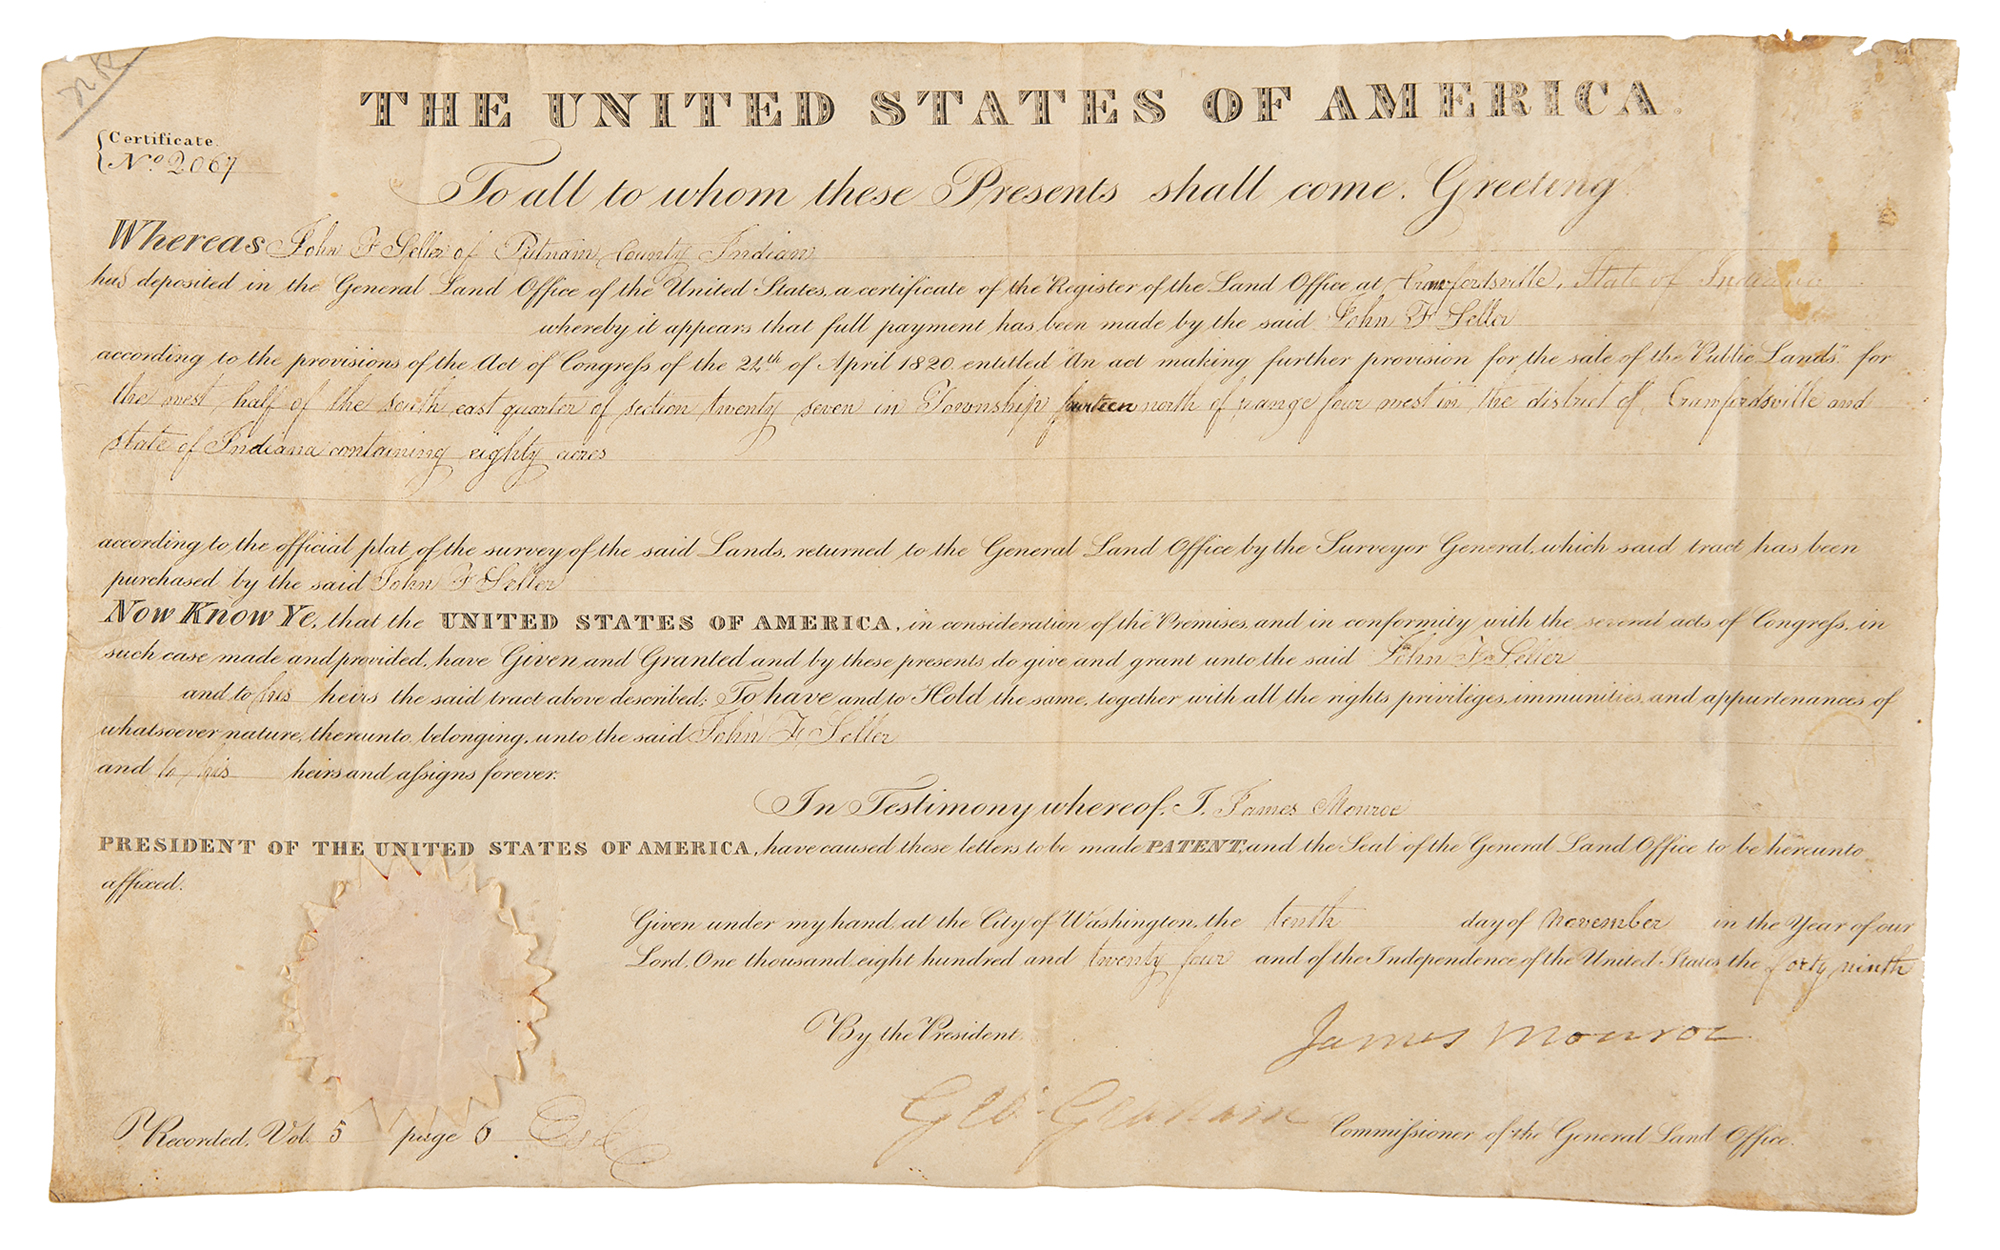 N R
THE UNITED STATES OF AMERICA.
Certificate.
No. 2067
To all to whom these Presents shall come, Greeting
Whereas John F Seller of Putnam County Indian
has deposited in the General Land Office of the United States, a certificate of the Register of the Land Office at Crawfordsville, State of Indiana
whereby it appears that full payment has been made by the said John F Seller
according to the provisions of the Act of Congress of the 24th of April 1820 entitled "An act making further provision for the sale of the Public Lands," for
the west half of the south east quarter of section twenty seven in Township fourteen north of range four west in the district of Crawfordsville and
state of Indiana containing eighty acres
according to the official plat of the survey of the said Lands, returned to the General Land Office by the Surveyor General, which said tract has been
purchased by the said John F Seller
Now Know Ye, that the UNITED STATES OF AMERICA, in consideration of the Premises, and in conformity with the several acts of Congress, in
such case made and provided, have Given and Granted and by these presents do give and grant unto the said John F Seller
and to his heirs the said tract above described; To have and to Hold the same, together with all the rights privileges, immunities, and appurtenances of
whatsoever nature, thereunto belonging, unto the said John F Seller
and to his heirs and assigns forever.
In Testimony whereof, I, James Monroe
PRESIDENT OF THE UNITED STATES OF AMERICA, have caused these letters to be made PATENT, and the Seal of the General Land Office to be hereunto
affixed.
Given under my hand, at the City of Washington, the tenth day of november in the Year of our
Lord, One thousand, eight hundred and twenty four and of the Independence of the United States the forty ninth
By the President,
James Monroe
Geo: Graham Commissioner of the General Land Office.
Recorded, Vol. 5 page 6